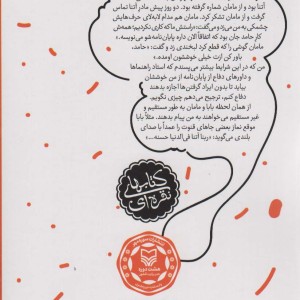 آتنا بود و از مامان شماره گرفته بود. دو روز پیش مادر آتنا تماس
گرفت و از مامان تشکر کرد. مامان هم مدام لابه‌لای حرف‌هایش
چشمکی به من می‌زد و می‌گفت: «راستش ما که کاری نکردیم؛ همه‌ش
کار حامد جان بود که اتفاقاً الان داره پایان‌نامه‌شو می‌نویسه.»
مامان گوشی را که قطع کرد لبخندی زد و گفت: «حامد،
باور کن ازت خیلی خوششون اومده.»
من که در این شرایط بیشتر می‌پسندم که استاد راهنماها
و داورهای دفاع از پایان‌نامه از من خوششان
بیاید تا بدون ایراد گرفتن‌ها اجازه بدهند
دفاع کنم، ترجیح می‌دهم چیزی نگویم.
از همان لحظه بابا و مامان به طور مستقیم و
غیر مستقیم می‌خواهند به من پیام بدهند. مثلاً بابا
موقع نماز بعضی جاهای قنوت را عمداً با صدای
بلندی می‌گوید: «ربنا آتنا فی‌الدنیا حسنه...»
کتاب‌های
نقره‌ای
انتشارات سوره مهر